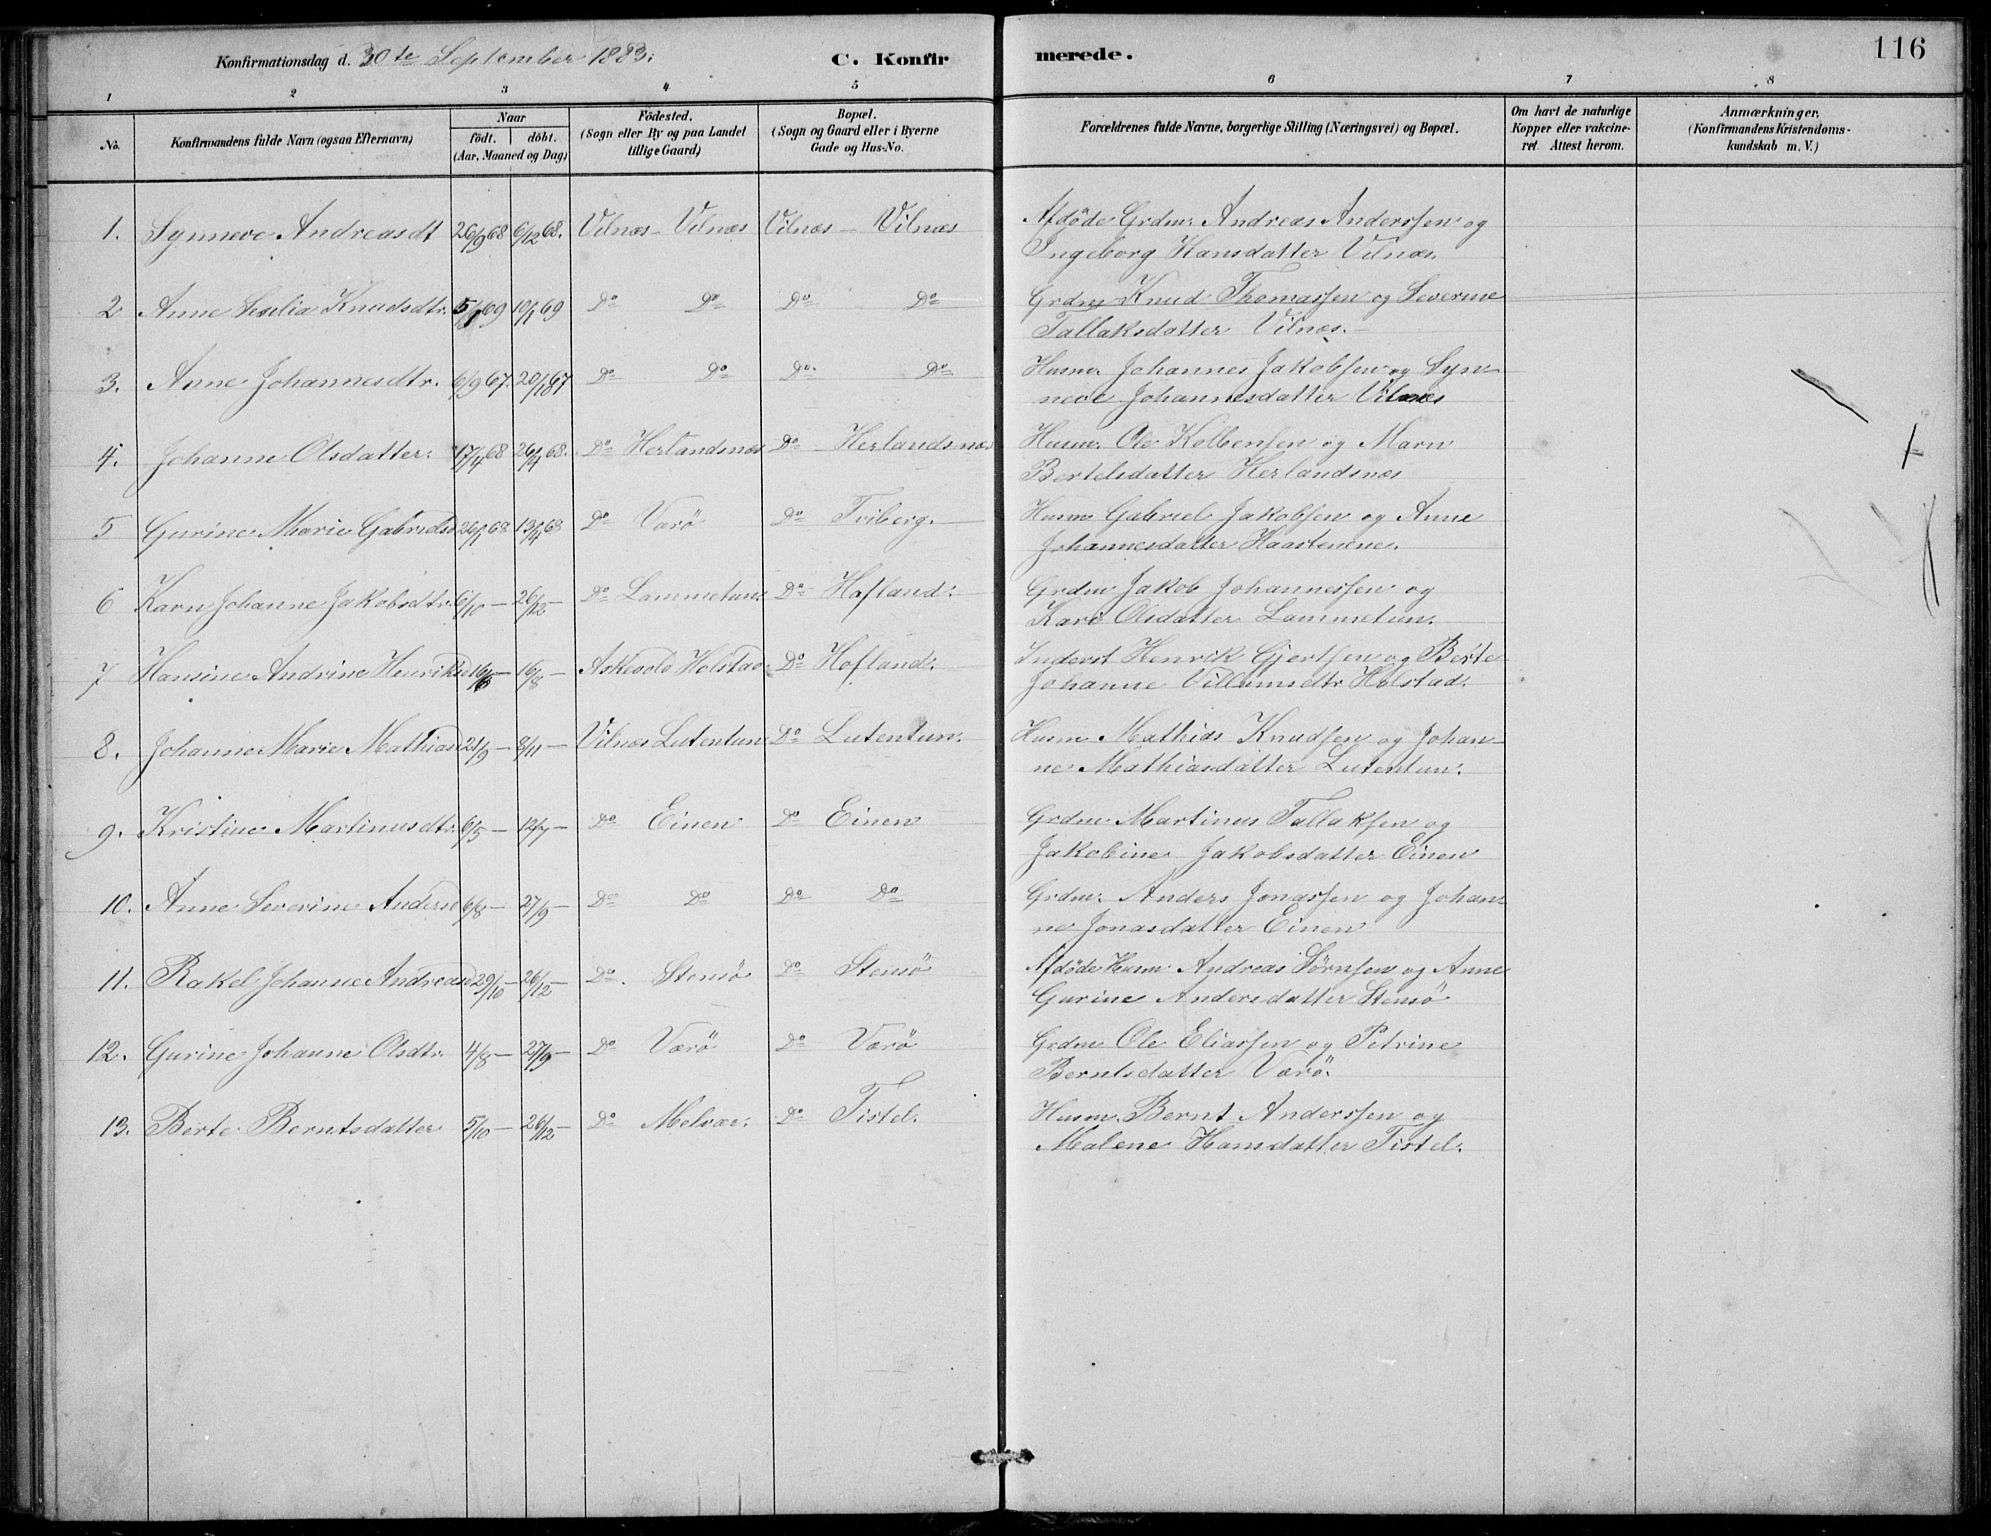 116
Konfirmationsdag d. 30te September 1883.
C. Konfirmerede.
1 2 3 4 5 6 7 8
No. Konfirmandens fulde Navn (ogsaa Efternavn) Naar født. døbt. (Aar, Maaned og Dag) Födested. (Sogn eller By og paa Landet tillige Gaard) Bopæl. (Sogn og Gaard eller i Byerne Gade og Hus-No. Forældrenes fulde Navne, borgerlige Stilling (Næringsvei) og Bopæl. Om havt de naturlige Kopper eller vakcineret. Attest herom. Anmærkninger, (Konfirmandens Kristendomskundskab m. V.)
1. Synneve Andreasdt 26/9 68 6/12 68. Vilnæs - Vilnæs Vilnæs - Vilnæs Afdøde Grdm. Andreas Anderssen og
Ingeborg Hansdatter Vilnæs.
2 Anne Sesilia Knudsdtr. 69 10/1 69 Do Do Do Do Grdm Knud Thomassen og Severine
Tallaksdatter Vilnæs.
3. Anne Johannesdtr. 6/9 67. 20/10 67 Do Do Do. Do Husm. Johannes Jakobsen og Syn-
neve Johannesdatter Vilnæs
4. Johanne Olsdatter. 17/4 68 26/4 68. Do Herlandsnæs Do Herlandsnæs Husm. Ole Kolbensen og Marn
Bertelsdatter Herlandsnæs
5 Gurine Marie Gabrielsd 26/1 68 13/4 68 Do Værö Do Tviberg. Husm Gabriel Jakobsen og Anne
Johannesdatter Haastenene.
6 Karn Johanne Jakobsdtr. 6/10 - 26/12 - Do Lammetun. Do Hofland. Grdm Jakob Johannessen og
Kari Olsdatter Lammetun.
7 Hansine Andrine Henriksd 16/8 - Askevold Holstad Do Hofland. Inderst Henrik Gjertsen og Berte
Johanne Villumsdtr Holstad.
8. Johanne Marie Mathiasd 21/9 - 8/11 - Vilnæs Lutentun. Do Lutentun. Husm Mathias Knudsen og Johan-
ne Mathiasdatter Lutentun.
9. Kristine Martinusdtr. 6/5 - 12/7 - Do Einen Do Einen Grdm Martinus Tallaksen og
Jakobine Jakobsdatter Einen
10. Anne Severine Andersd 6/8 - 27/9 - Do Do Do Do Grdm. Anders Jonassen og Johan-
ne Jonasdatter Einen
11. Rakel Johanne Andreasd 29/10 - 26/12 - Do. Stensö Do Stensö Afdöde Husm Andreas Sörnsen og Anne
Gurine Andersdatter Stensö
12. Gurine Johanne Olsdtr. 4/8 - 27/9 - Do Værö Do Værö Grdm Ole Eliassen og Petrine
Berntsdatter Værö.
13. Berte Berntsdatter 5/10 - 26/12 - Do Melvær. Do Tistel. Husm. Bernt Anderssen og
Malene Hansdatter Tistel.